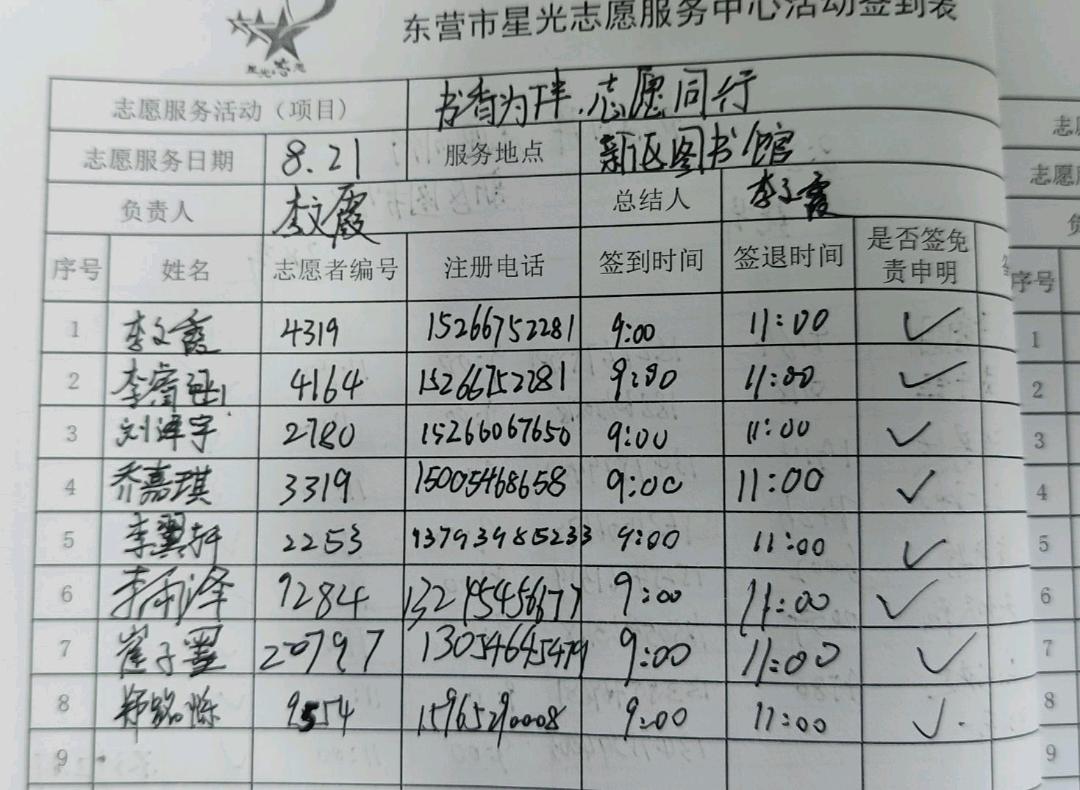 东营市星光志愿服务中心活动签到表
志愿服务活动（项目） 书香为伴.志愿同行
志愿服务日期 8.21 服务地点 新区图书馆
负责人 李文霞 总结人 李文霞
序号 姓名 志愿者编号 注册电话 签到时间 签退时间 是否签免责申明
1 李文霞 4319 15266752281 9:00 11:00 ✓
2 李睿 4164 15266752281 9:00 11:00 ✓
3 刘泽宇 2780 15266067650 9:00 11:00 ✓
4 乔嘉琪 3319 15005468658 9:00 11:00 ✓
5 李翼轩 2253 13793985233 9:00 11:00 ✓
6 李雨泽 9284 9:00 11:00 ✓
7 崔子墨 20797 13054645479 9:00 11:00 ✓
8 郑铭烁 9554 15965290008 9:00 11:00 ✓
9
序号
1
2
3
4
5
6
7
8
9